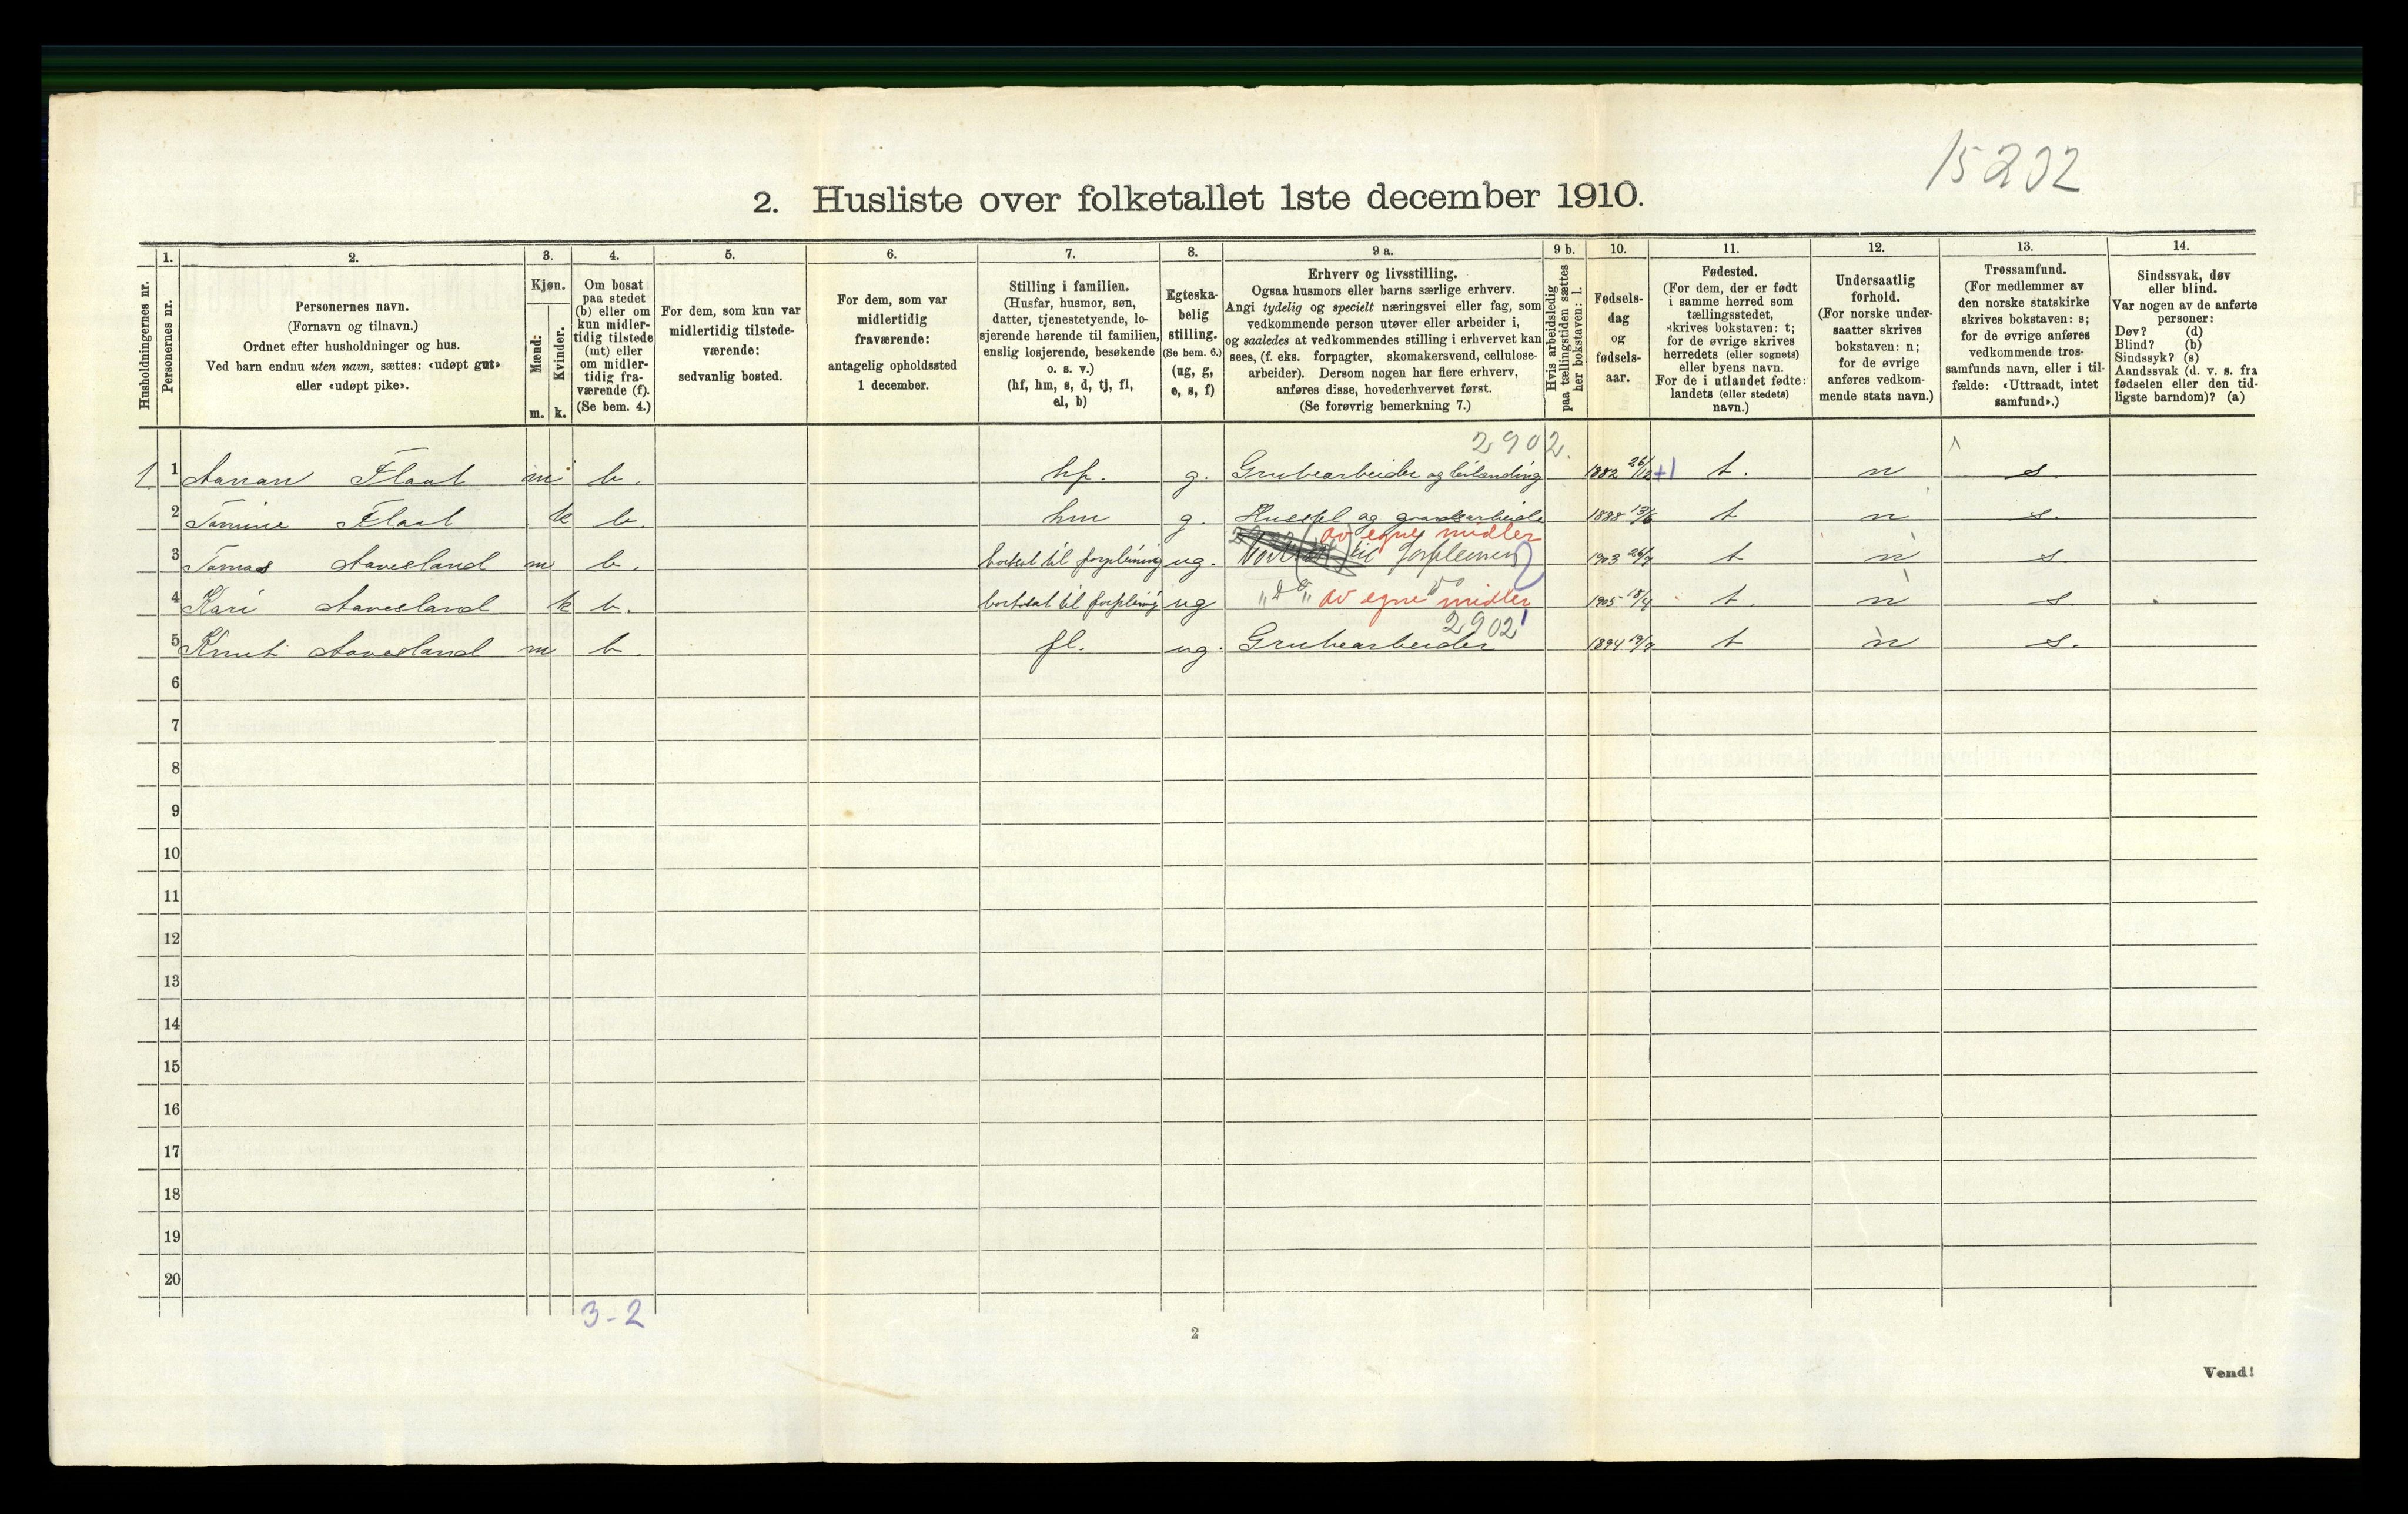 15202
2. Husliste over folketallet 1ste december 1910.
Husholdningernes nr.
1.
Personernes nr.
2.
Personernes navn.
(Fornavn og tilnavn.)
Ordnet efter husholdninger og hus.
Ved barn endnu uten navn, sættes: «udøpt gut»
eller «udøpt pike».
3.
Kjøn.
Mænd:
Kvinder.
m. k.
4.
Om bosat
paa stedet
(b) eller om
kun midler-
tidig tilstede
(mt) eller
om midler-
tidig fra-
værende (f).
(Se bem. 4.)
5.
For dem, som kun var
midlertidig tilstede-
værende:
sedvanlig bosted.
6.
For dem, som var
midlertidig
fraværende:
antagelig opholdssted
1 december.
7.
Stilling i familien.
(Husfar, husmor, søn,
datter, tjenestetyende, lo-
sjerende hørende til familien,
enslig losjerende, besøkende
o. s. v.)
(hf, hm, s, d, tj, fl,
el, b)
8.
Egteska-
belig
stilling.
(Se bem. 6.)
(ug, g,
e, s, f)
9 a.
Erhverv og livsstilling.
Ogsaa husmors eller barns særlige erhverv.
Angi tydelig og specielt næringsvei eller fag, som
vedkommende person utøver eller arbeider i,
og saaledes at vedkommendes stilling i erhvervet kan
sees, (f. eks. forpagter, skomakersvend, cellulose-
arbeider). Dersom nogen har flere erhverv,
anføres disse, hovederhvervet først.
(Se forøvrig bemerkning 7.)
9 b.
Hvis arbeidsledig
paa tællingstiden sættes
her bokstaven: l.
10.
Fødsels-
dag
og
fødsels-
aar.
11.
Fødested.
(For dem, der er født
i samme herred som
tællingsstedet,
skrives bokstaven: t;
for de øvrige skrives
herredets (eller sognets)
eller byens navn.
For de i utlandet fødte:
landets (eller stedets)
navn.)
12.
Undersaatlig
forhold.
(For norske under-
saatter skrives
bokstaven: n;
for de øvrige
anføres vedkom-
mende stats navn.)
13.
Trossamfund.
(For medlemmer av
den norske statskirke
skrives bokstaven: s;
for de øvrige anføres
vedkommende tros-
samfunds navn, eller i til-
fælde: «Uttraadt, intet
samfund».)
14.
Sindssvak, døv
eller blind.
Var nogen av de anførte
personer:
Døv? (d)
Blind? (b)
Sindssyk? (s)
Aandssvak (d. v. s. fra
fødselen eller den tid-
ligste barndom)? (a)
2902.
1 1 Aanan Flaat m b. hf. g. Grubearbeider og leilænding 1882 26/12 +1 t. n s
2 Tomine Flaat k b. hm g. Husstel og gaardsarbeide 1888 13/6 t n s.
av egne midler
3 Tomas Aavesland m b. bortsat til forpleining ug. til forpleining 1903 26/7 t n s.
4 Kari Aavesland k b. bortsat til forpleining ug „ do „ av egne midler do 1905 18/4 t. n s
2902
5 Knut Aavesland m b. fl. ug. Grubearbeider 1894 19/7 t n s.
6
7
8
9
10
11
12
13
14
15
16
17
18
19
20
3-2
2
Vend!